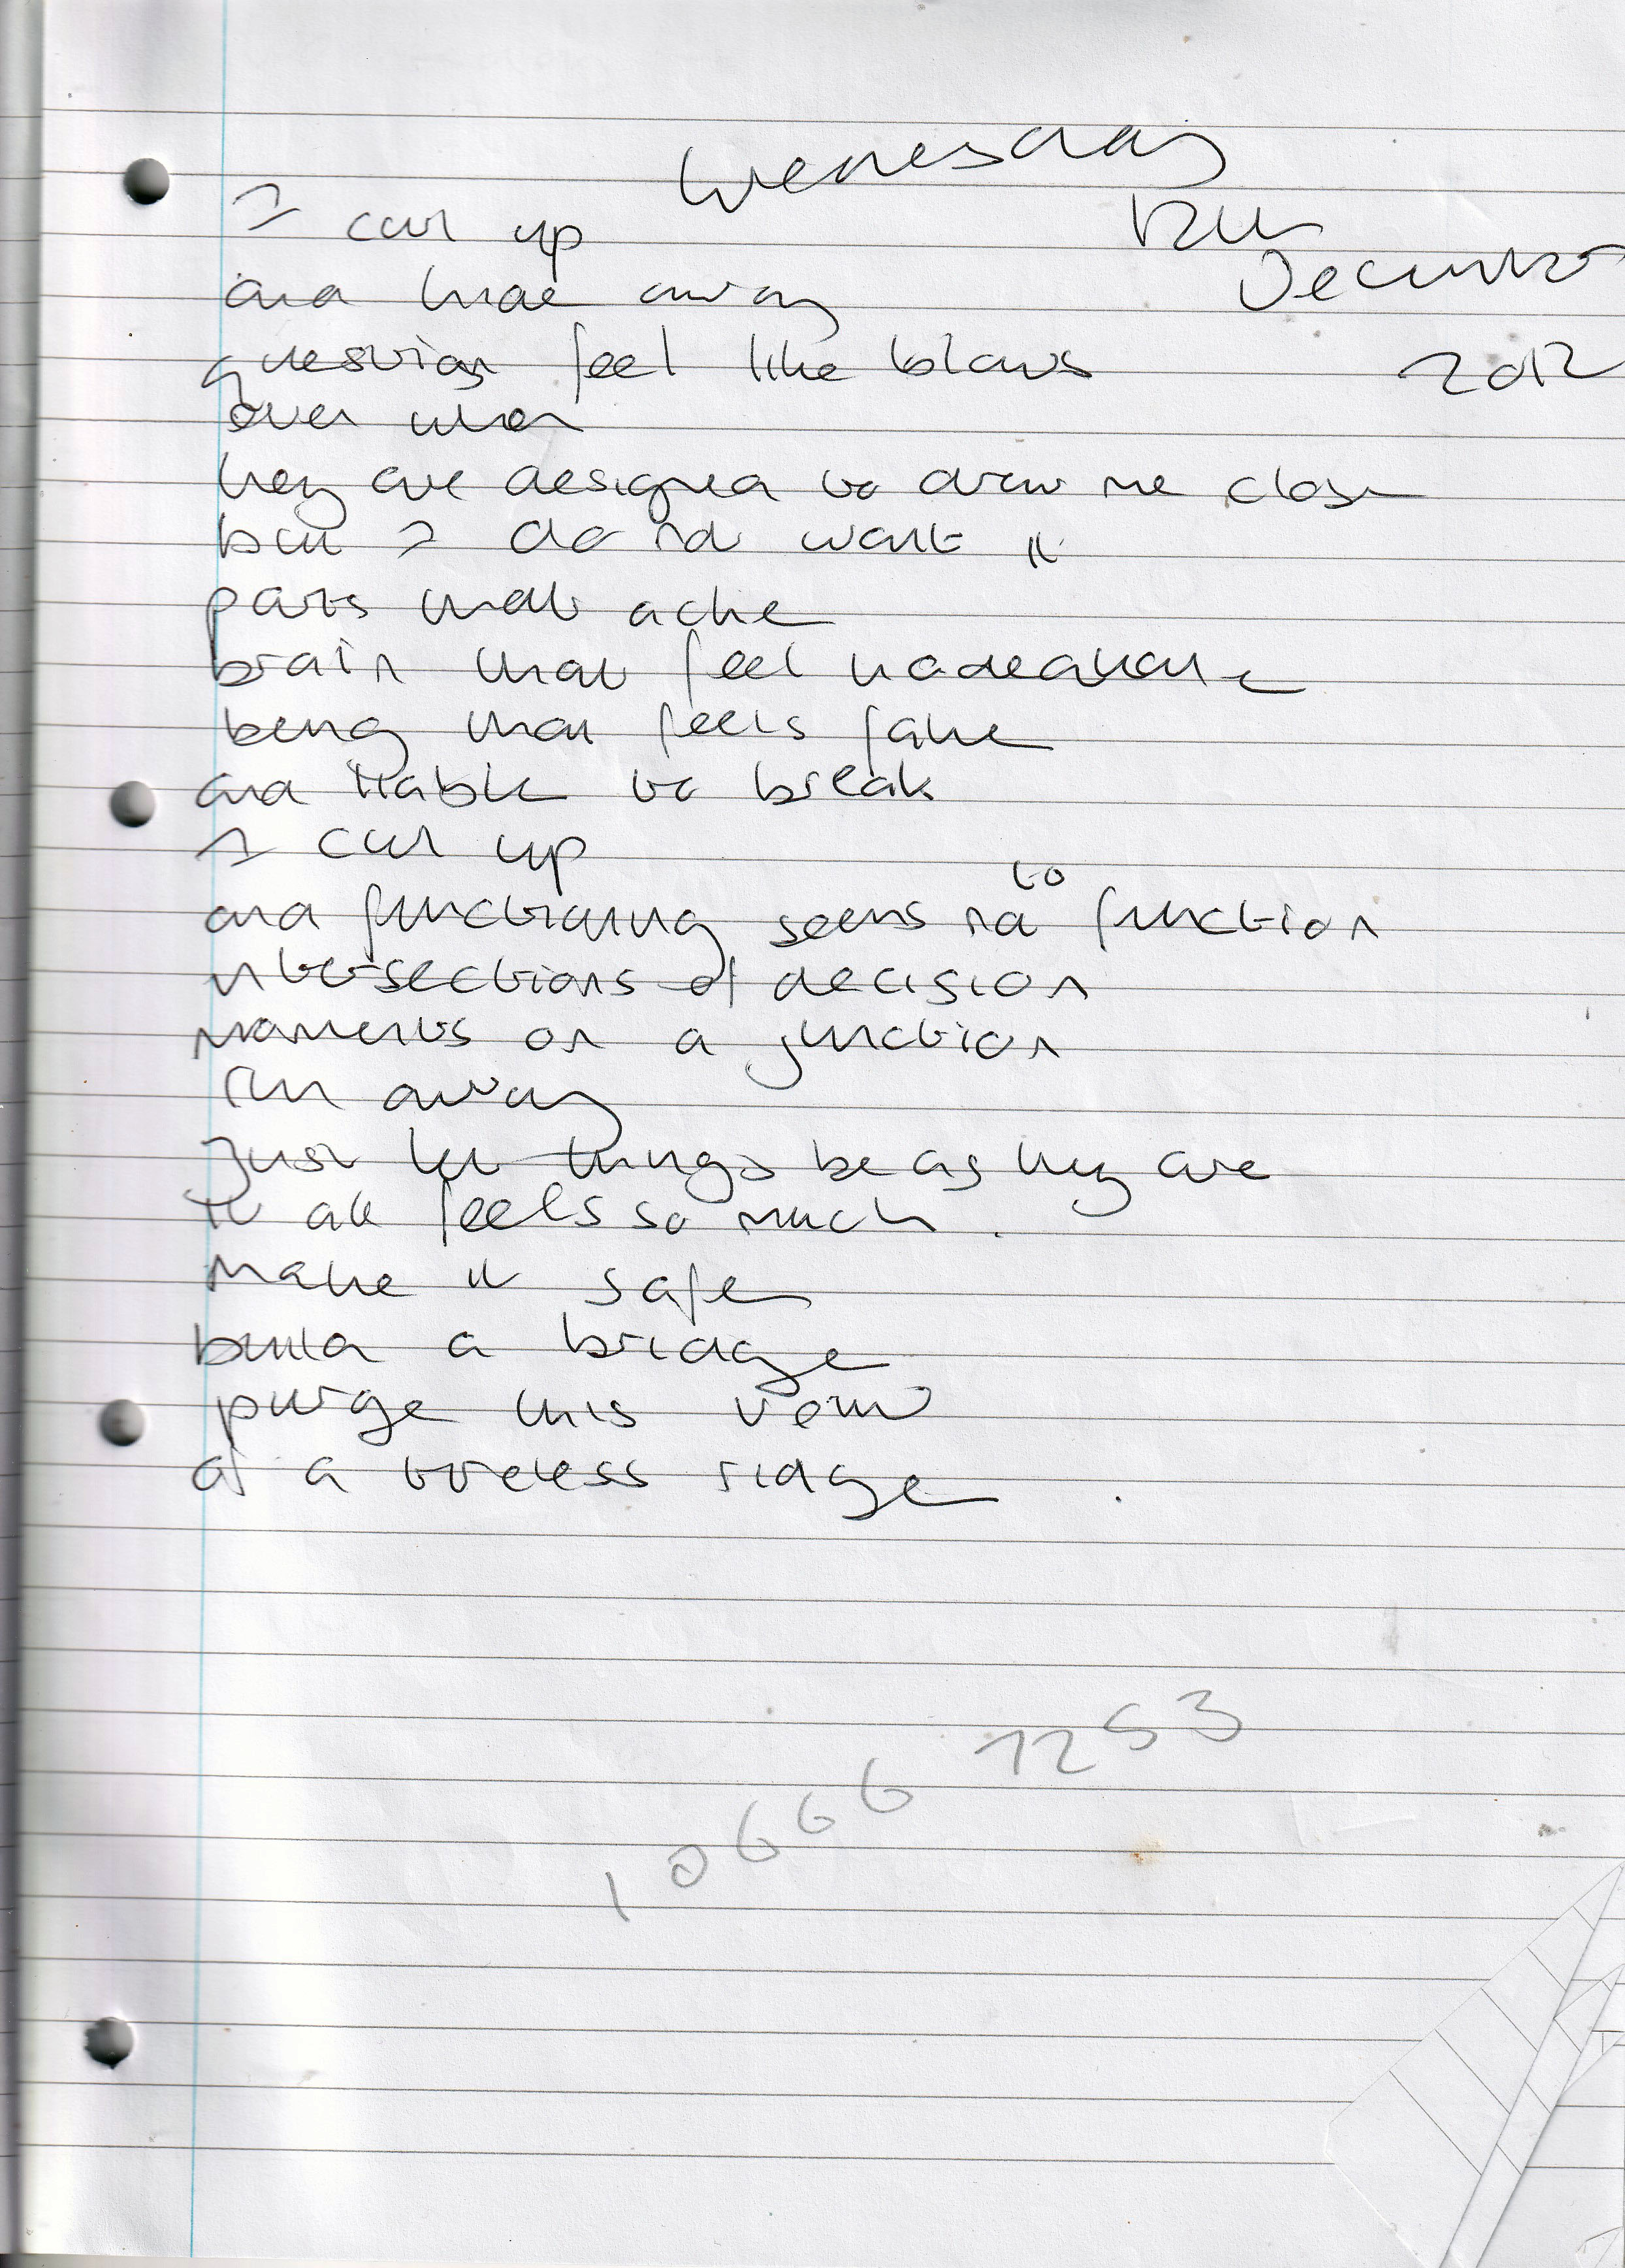 Wednesday
12th
December
2012
I curl up
and hide away
question feel like blows
even when
they are designed to draw me close
but I do not want it
parts that ache
brain that feel inadequate
being that feels fake
and liable to break
I curl up
and functioning seems not to function
intersections of decision
moments on a junction
run away
Just let things be as they are
it all feels so much.
make it safe
build a bridge
purge this view
of a treeless ridge.
10666 7253